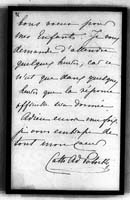 tous vous pour
mes Enfants. Je vous
demande d'attendre
quelques heures, car ce
n'est que dans quelques
heures que la réponse
offerte sera donnée
Adieu encore une fois
je vous embrasse de
tout mon cœur